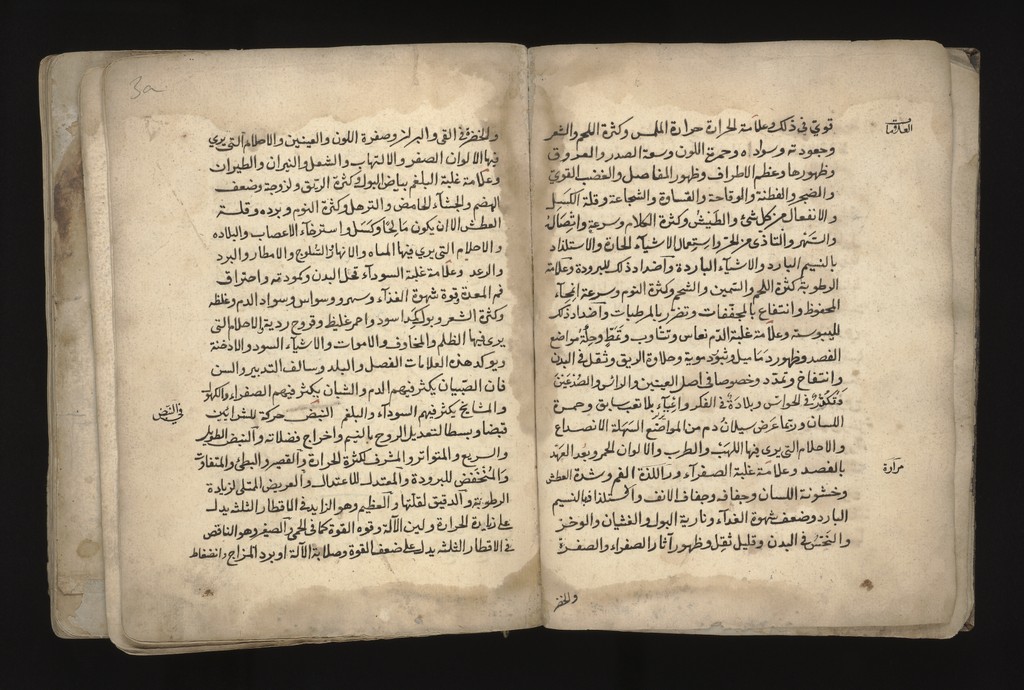 قوي في ذلك وعلامة الحرارة حرارة الملمس وكثرة اللحم والشعر
وجعودته وسواده وحمرة اللون وسعة الصدر والعروق
وظهورها وعظم الاطراف وظهور المفاصل والغضب القوي
والضجر والفطنة والوقاحة والقساوة والشجاعة وقلة الكسل
والانفعال من كل شئ والطيش وكثرة الكلام وسرعة واتصاله
والسهر والتاذي من الحر واستعمال الاشياء الحارة والاستلذاذ
بالنسيم البارد والاشياء الباردة واضداد ذلك للبرودة وعلامة
الرطوبة كثرة اللحم والسمين والشحم وكثرة النوم وسرعة انمحاء
المحفوظ وانتفاع بالمجففات وتضرر بالمرطبات واضداد ذلك
لليبوسة وعلامة غلبة الدم نعاس وتثاوب وتمط وحكة مواضع
الفصد وظهور دماميل وبثور دموية وحلاوة الريق وثقل في البدن
وانتفاخ وتمدد وخصوصا في اصل العينين والراس والصدغين
وتكدر في الحواس وبلادة في الفكر واعياء بلا تعب سابق وحمرة
اللسان وربما عرض سيلان دم من المواضع السهلة الانصداع
والاحلام التي يرى فيها اللهب والطرب والالوان الحمر وبعد العهد
بالفصد وعلامة غلبة الصفراء مرارة الفم وشدة العطش
وخشونة اللسان وجفافه وجفاف الانف والاستلذاذ بالنسيم
البارد وضعف شهوة الغداء ونارية البول والغثيان والوخز
والنخس في البدن وقليل ثقل وظهور آثار الصفراء والصفرة
العلامات
مرارة
والخضر
والخضرة في القي والبراز وصفرة اللون والعينين والاحلام التي يرى
فيها الالوان الصفر والالتهاب والشعل والنيران والطيران
وعلامة غلبة البلغم بياض البول وكثرة الريق ولزوجته وضعف
الهضم والجشاء الحامض والترهل وكثرة النوم وبرده وقلة
العطش الا ان يكون مالحا وكسل واسترخاء الاعصاب والبلاده
والاحلام التي يرى فيها المياه والانهار والثلوج والامطار والبرد
والرعد وعلامة غلبة السوداء قحل البدن وكمودته واحتراق
فم المعدة وقوة شهوة الغذاء وسهر ووسواس وسواد الدم وغلظه
وكثرة الشعر وبول كمد اسود واحمر غليظ وقروح ردية الاحلام التي
يرى فيها الظلم والمخاوف والاموات والاشياء السود والادخنة
ويوكد هذه العلامات الفصل والبلد وسالف التدبير والسن
فان الصبيان يكثر فيهم الدم والشبان يكثر فيهم الصفراء والكهول
والمشايخ يكثر فيهم السوداء والبلغم النبض حركة للشرائين
قبضا وبسطا لتعديل الروح بالنسيم واخراج فضلاته والنبض الطويل
والسريع والمتواتر والمشرف لكثرة الحرارة والقصير والبطئ والمتفاوت
والمنخفض للبرودة والمعتدل للاعتدال والعريض الممتلى لزيادة
الرطوبة والدقيق لقلتها والعظيم وهو الزايد في الاقطار الثلثه يدل
على زيادة الحرارة ولين الآلة وقوه القوة كما في الحمى والصغير وهو الناقص
في الاقطار الثلثه يدل على ضعف القوة وصلابة الآلة او برد المزاج وانضغاط
في النبض
3a